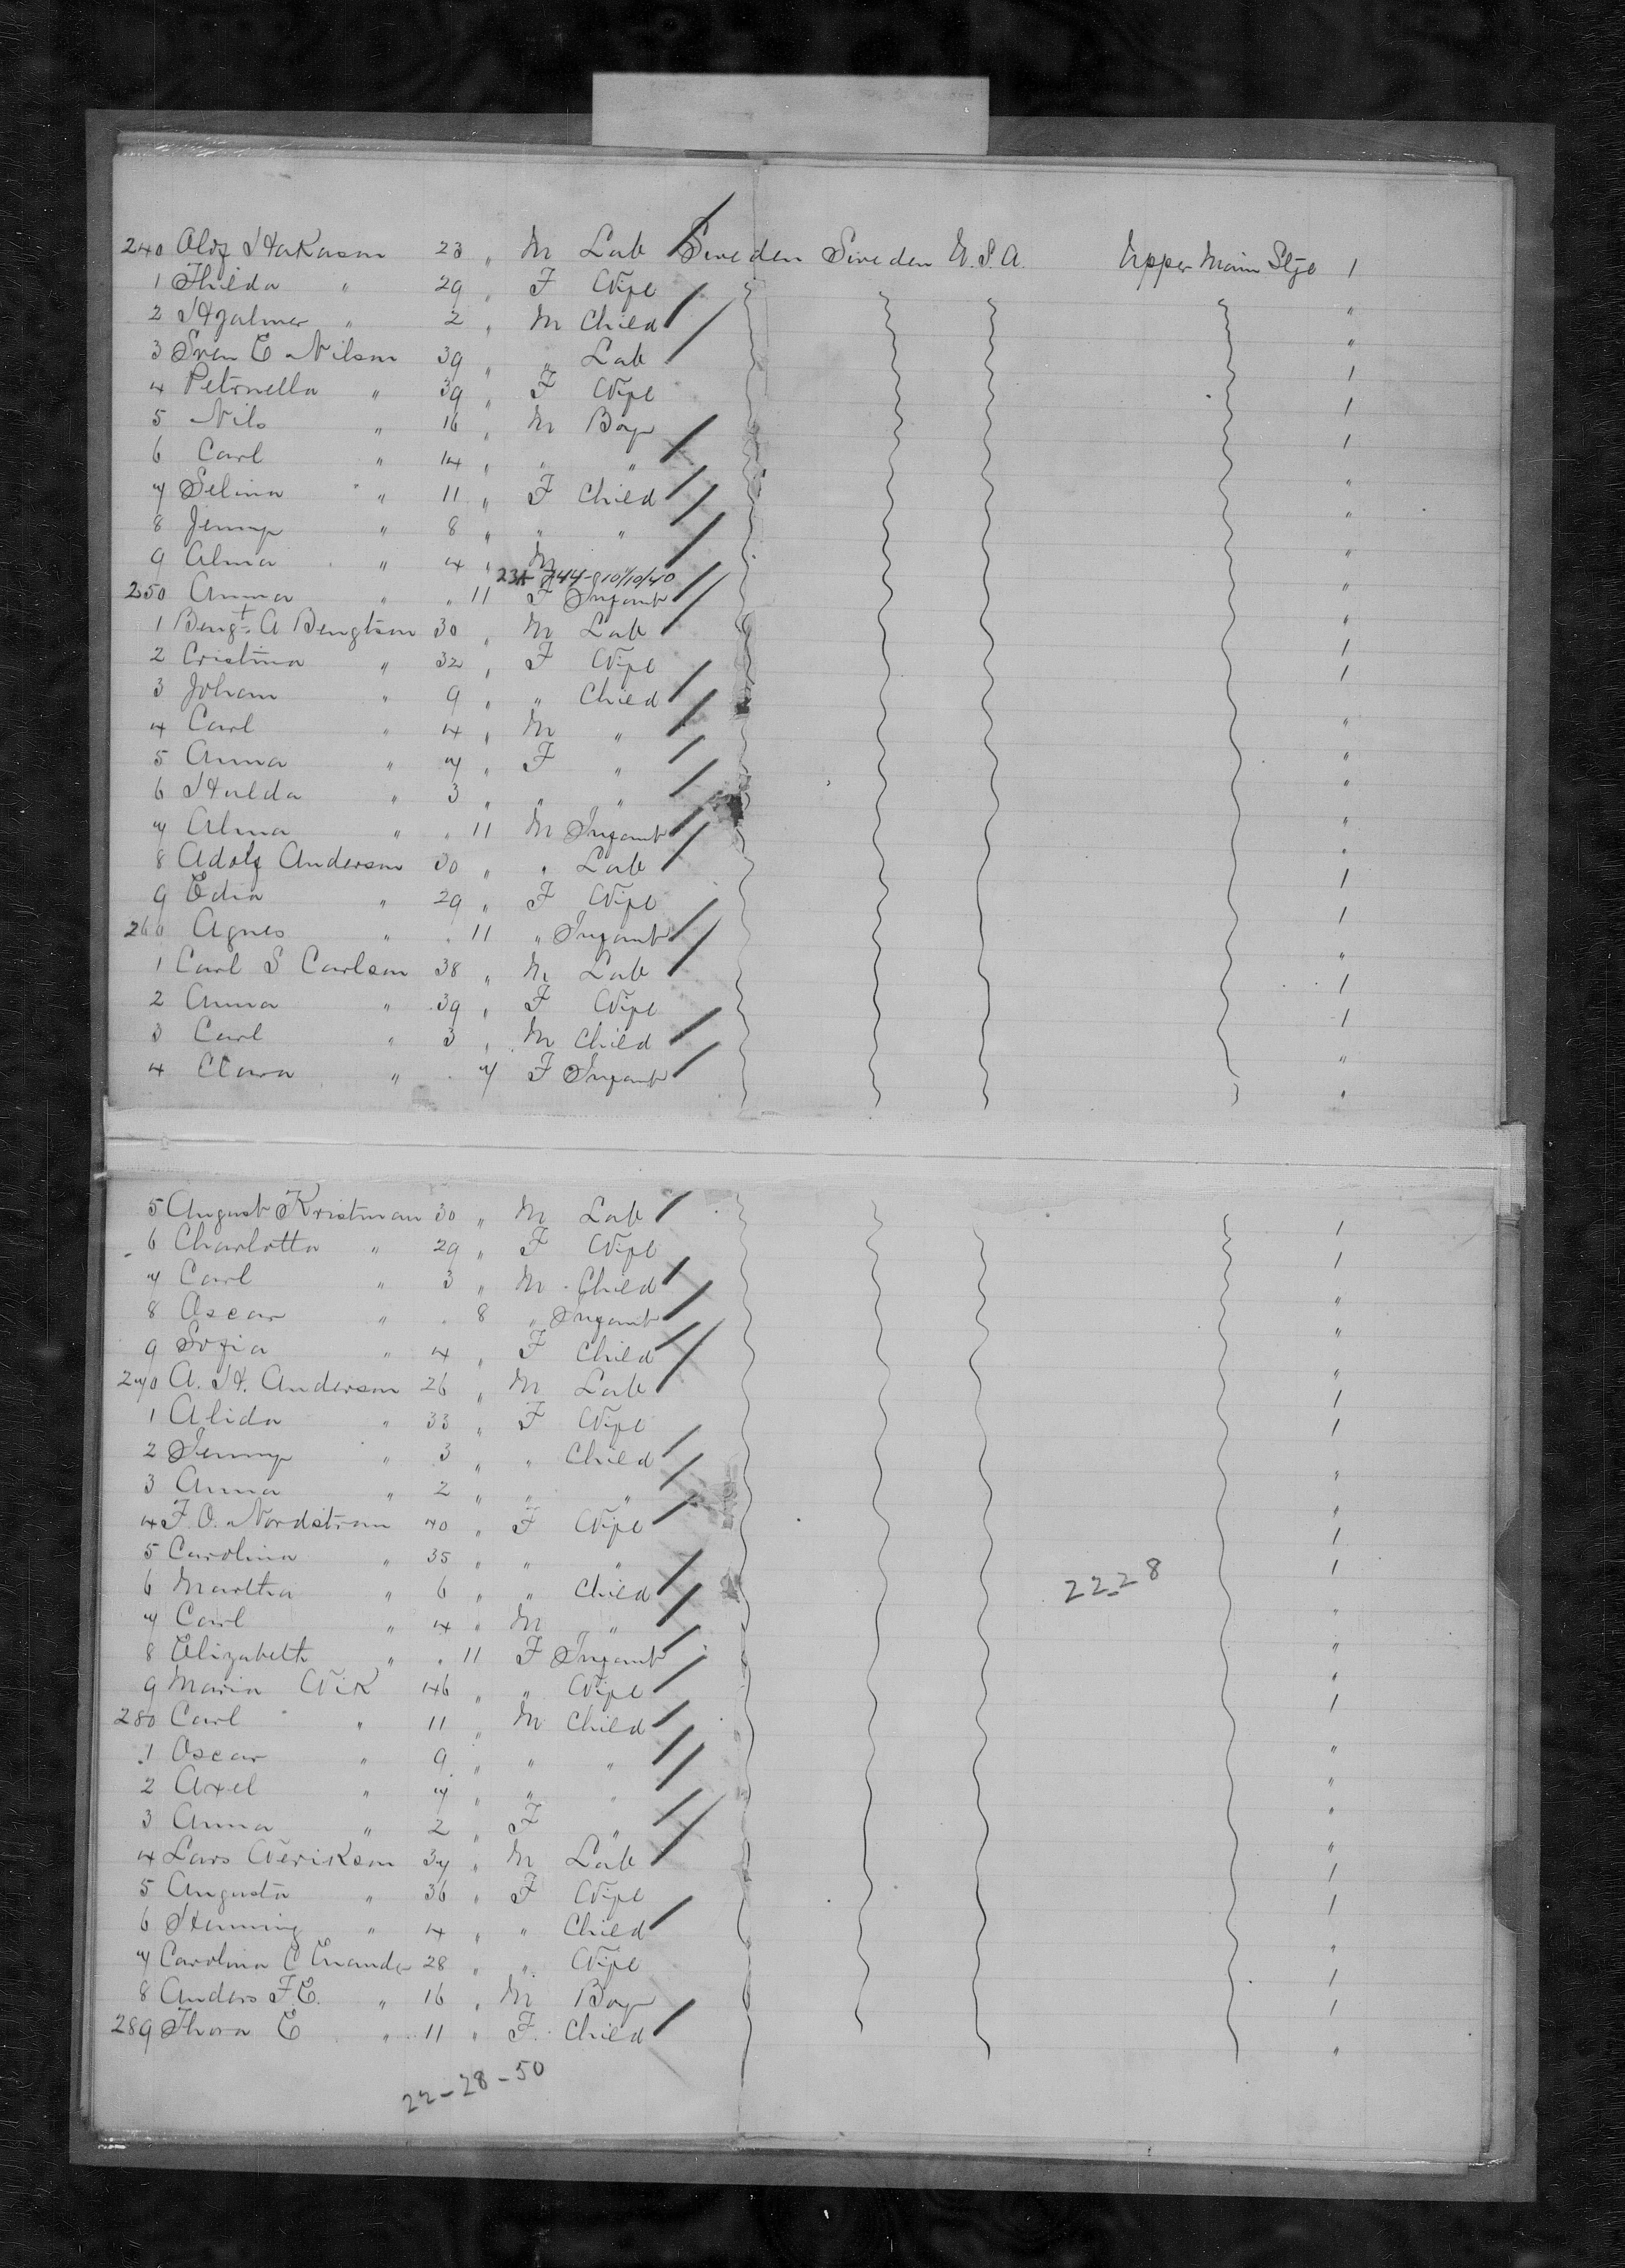 240 Olof Hakanson 23 " M Lab Sweden Sweden U.S.A. Upper Main Stge 1
1 Thilda " 29 " F Wife "
2 Hjalmer " 2 " M Child "
3 Sven E Nilson 39 " " Lab 1
4 Petronella " 39 " F Wife 1
5 Nils " 16 " M Boy 1
6 Carl " 14 " " " "
7 Selina " 11 " F Child "
8 Jenny " 8 " " " "
9 Alma " 4 " M "
23A-744-810/10/40
250 Anna " " 11 F Infant "
1 Bengt A Bengtson 30 " M Lab 1
2 Cristina " 32 " F Wife 1
3 Johan " 9 " " Child "
4 Carl " 4 " M " "
5 Anna " 7 " F " "
6 Hulda " 3 " " " "
7 Alma " " 11 M Infant "
8 Adolf Anderson 30 " " Lab 1
9 Edia " 29 " F Wife 1
260 Agnes " " 11 " Infant "
1 Carl S Carlson 38 " M Lab 1
2 Anna " 39 " F Wife 1
3 Carl " 3 " M Child "
4 Clara " " 7 F Infant "
5 August Kristman 30 " M Lab 1
6 Charlotta " 29 " F Wife 1
7 Carl " 3 " M Child "
8 Oscar " " 8 " Infant "
9 Sofia " 4 " F Child "
270 A. H. Anderson 26 " M Lab 1
1 Alida " 33 " F Wife 1
2 Jenny " 3 " " Child "
3 Anna " 2 " " " "
4 F. O. Nordstrom 40 " F Wife 1
5 Carolina " 35 " " " 1
22-28
6 Martha " 6 " " Child "
7 Carl " 4 " M " "
8 Elizabeth " " 11 F Infant "
9 Maria Wik 46 " " Wife 1
280 Carl " 11 " M Child "
1 Oscar " 9 " " " "
2 Axel " 7 " " " "
3 Anna " 2 " F " "
4 Lars Werikson 37 " M Lab 1
5 Augusta " 36 " F Wife 1
6 Henning " 4 " " Child "
7 Carolina C Enander 28 " " Wife 1
8 Anders F.E. " 16 " M Boy 1
289 Thora E " 11 " F Child "
22-28-50